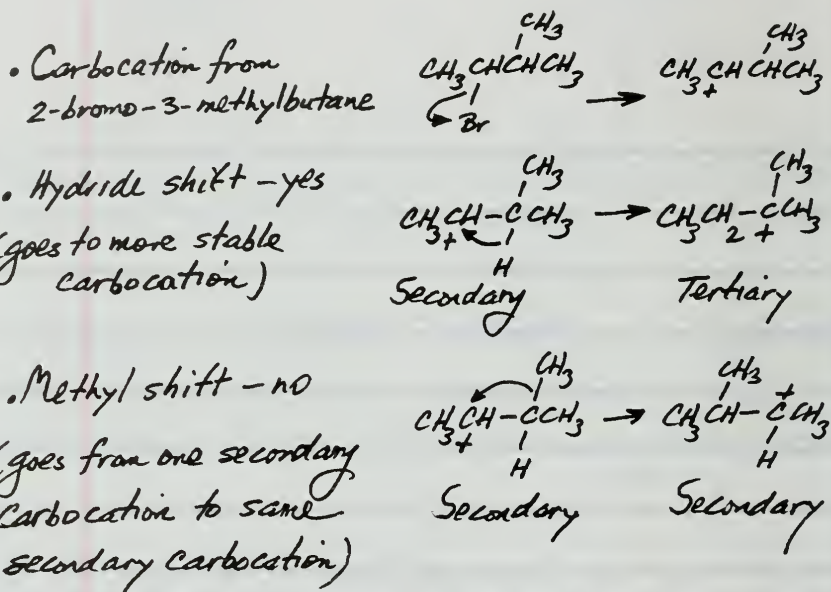 • Carbocation from
2-bromo-3-methylbutane
CH3
CH3CHCHCH3
Br
CH3
CH3CHCHCH3
+
• Hydride shift - yes
(goes to more stable
carbocation)
CH3
CH3CH-CCH3
+
H
Secondary
CH3
CH3CH2-CCH3
+
Tertiary
• Methyl shift - no
(goes from one secondary
carbocation to same
secondary carbocation)
CH3
CH3CH-CCH3
+
H
Secondary
CH3
+
CH3CH-CCH3
H
Secondary